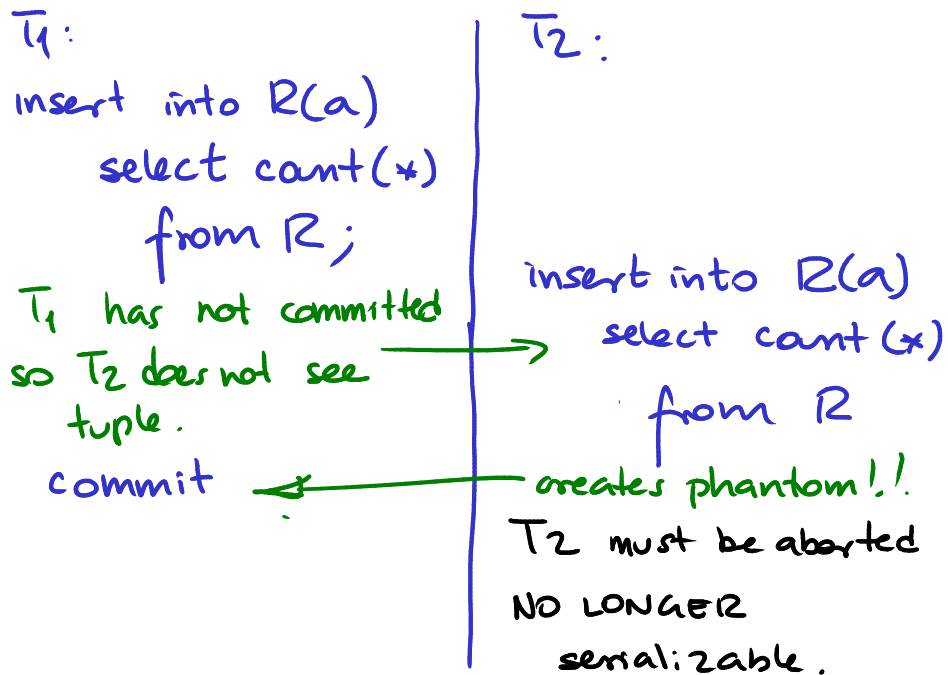 T1:
insert into R(a)
select count(*)
from R;
T1 has not committed
so T2 does not see
tuple.
commit
T2:
insert into R(a)
select count(*)
from R
creates phantom!!
T2 must be aborted
NO LONGER
serializable.